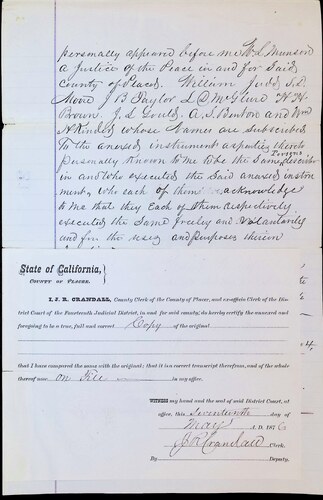 personally appeared before me W. S. Munson
a Justice of the Peace in and for Said
County of Placer. William Judd S.S.
Moore J B Taylor L D McClure H H
Brown J. L. Gould. A. J. Benton and Wm
N Kindel whose Names are subscribed
To the anexed instrument as parties thereto
Persons
personally Known to me to be the Same describ
in and who executed the Said anexed instru
ment, who each of them acknowledge
to me that they Each of them respectively
executed the Same freely and voluntarily
and for the uses and purposes therein
State of California,
COUNTY OF PLACER.
I, J. R. CRANDALL, County Clerk of the County of Placer, and ex-officio Clerk of the Dis-
trict Court of the Fourteenth Judicial District, in and for said county, do hereby certify the annexed and
foregoing to be a true, full and correct Copy of the original
that I have compared the same with the original: that it is a correct transcript therefrom, and of the whole
thereof now on file in my office.
WITNESS my hand and the seal of said District Court, at
office, this Seventeenth day of
May A. D. 1876
J R Crandall Clerk.
By Deputy.